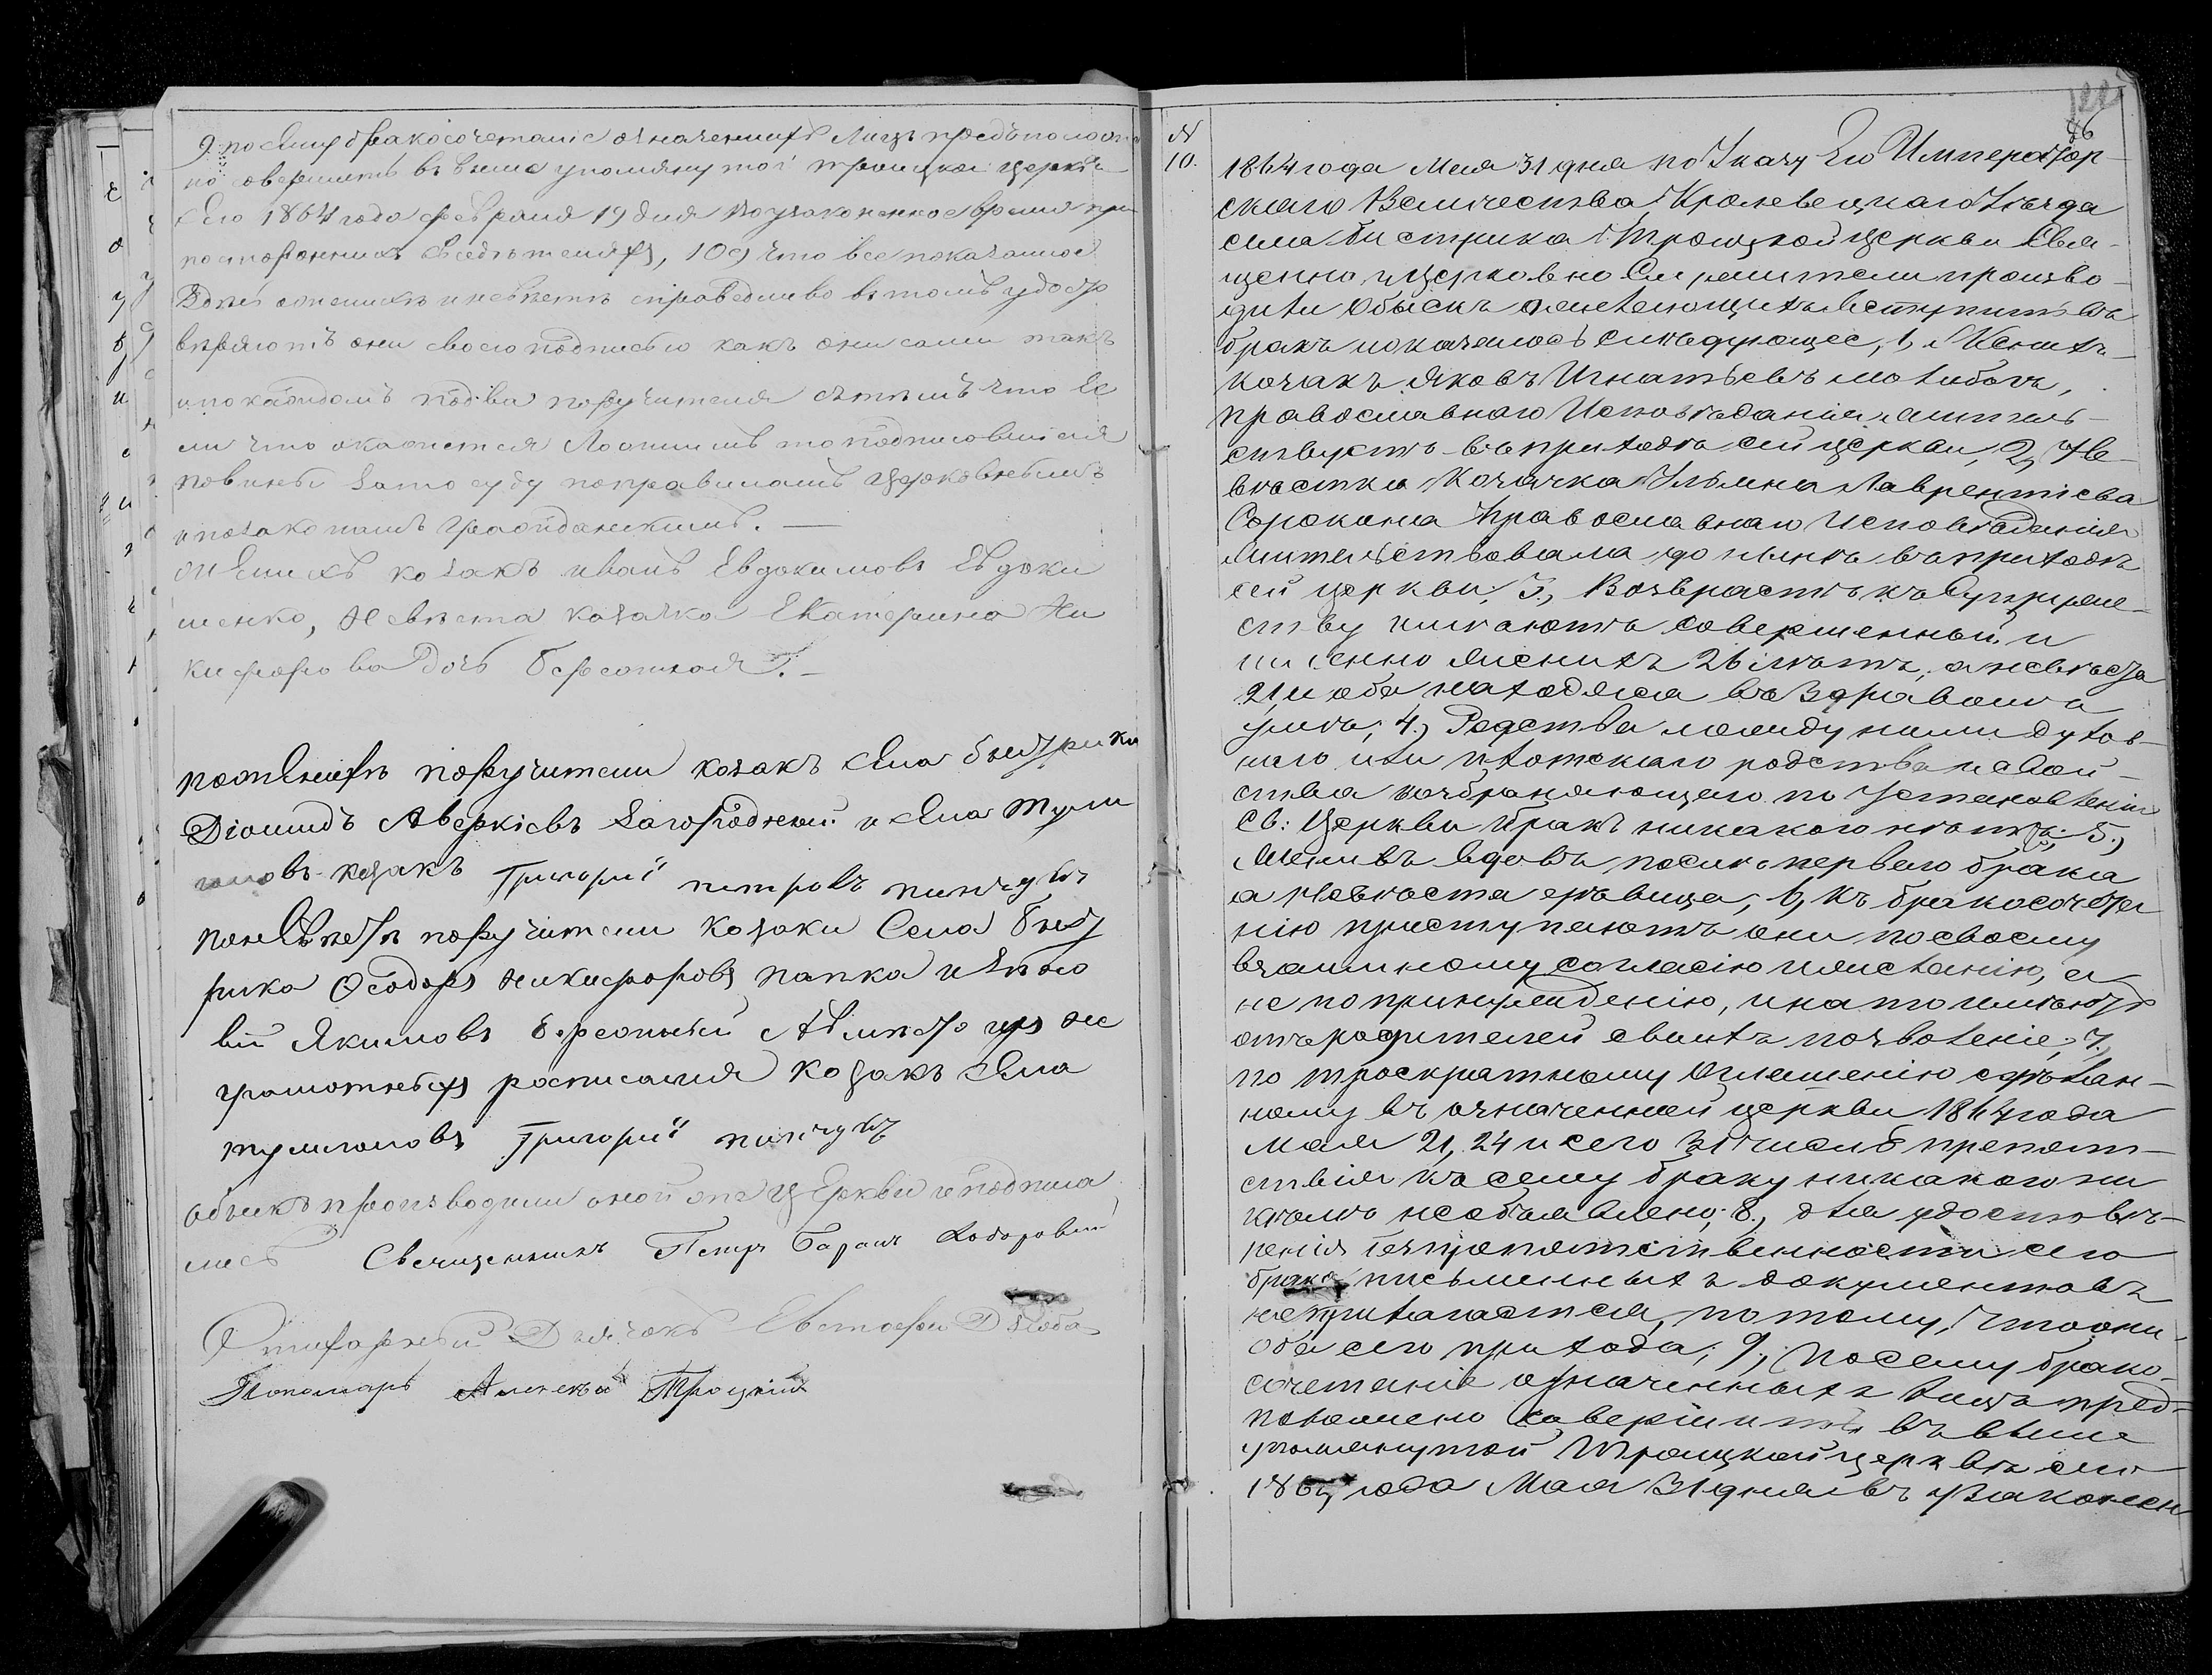 9. по сему бракосочетаніе означенныхъ лицъ предположе
но совершить въ выше упомянутой троицкой церкви
сего 1864 года февраля 19 дня въ узаконенное время при
постороннихъ свидѣтеляхъ, 10) что все показанное
здѣсь о женихѣ и невѣстѣ справедливо въ томъ удосто
вѣряютъ они своею подписью какъ они сами такъ
и по каждомъ по два поручителя съ тѣмъ что ес
ли что окажется ложнымъ то подписавшіеся
повинны за то суду по правиламъ церковнымъ
и по законамъ гражданскимъ. —
Женихъ козакъ иванъ Евдокимовъ Евдоки
менко, невѣста козачка Екатерина Ни
кифорова дочь
по женихѣ поручители козакъ села быстрика
Діомидъ Аверкіевъ Загородній и села Тули
головъ козакъ Григорій петровъ пинчукъ
по невѣстѣ поручители козаки Села быст
рика Ѳеодоръ никифоровъ папка и
вій Якимовъ а вмѣсто ихъ не
грамотныхъ росписался козакъ села
тулиголовъ Григорій пинчукъ
обыскъ производили оной же церкви и подписа
лись Священникъ Петръ Баран
Дьячокъ Евстафій Дзюба
Пономарь Алексѣй Троцкій
96
№
10.
1864 года Мая 31 дня по Указу Его Император-
скаго Величества, Кролевецкаго Уѣзда
села быстрика Троицкой церкви Свя-
щенно и Церковно Служители произво-
дили обыскъ о желающихъ вступить въ
бракъ и оказалось слѣдующее, 1, Женихъ
козакъ Яковъ Игнатьевъ
православнаго Исповѣданія жительс-
ствуетъ въ приходѣ сей церкви, 2, Не-
вѣстка Козачка Ульяна Лаврентіева
Сорокина православнаго Исповѣданія
Жительствовала до нынѣ въ приходѣ
сей церкви, 3., Возврастъ къ Супруже-
ству имѣютъ совершенный и
именно Женихъ 26 лѣтъ, а невѣста
21, и оба находятся въ здравомъ
умѣ, 4., Родства между ними духов-
наго или плотскаго родства и свой-
ства возбраняющаго по Установленію
Св: Церкви бракъ никакого нѣтъ; 5.,
Женихъ вдовъ послѣ перваго брака
а невѣста дѣвица; 6, Къ бракосочета
нію приступаютъ они по своему
взаимному согласію и желанію, а
не по принужденію, и на то имѣютъ
отъ родителей своихъ позволеніе, 7.,
по троекратному оглашенію сдѣлан-
ному въ означенной церкви 1864 года
Мая 21, 24 и сего 31 числъ препят-
ствія къ сему браку никакого ни
кѣмъ необъявлено; 8., для удостовѣ-
ренія безпрепятственности сего
брака письменныхъ документовъ
неприлагается, потому, что они
оба сего прихода; 9; По сему брако-
сочетаніе означенныхъ лицъ пред-
положено совершить въ выше
упомянутой Троицкой церквѣ сего
1864 года Мая 31 дня въ узаконен